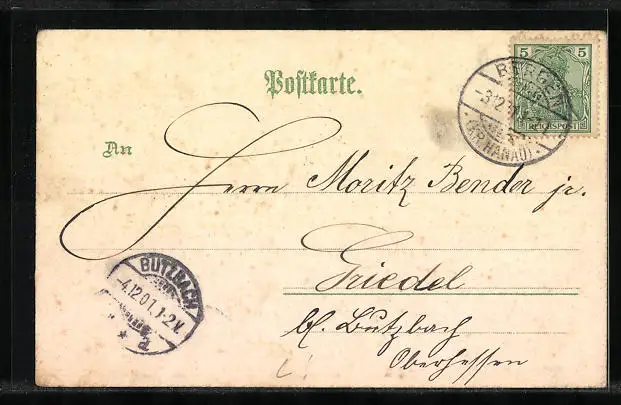 5 5
REICHSPOST
BERGEN
-3.12.01
(KR. HANAU)
Postkarte.
An
Herrn Moritz Bender jr.
Griedel
bf. Butzbach
Oberhessen
BUTZBACH
-4.12.01. 1-2 N.
* a